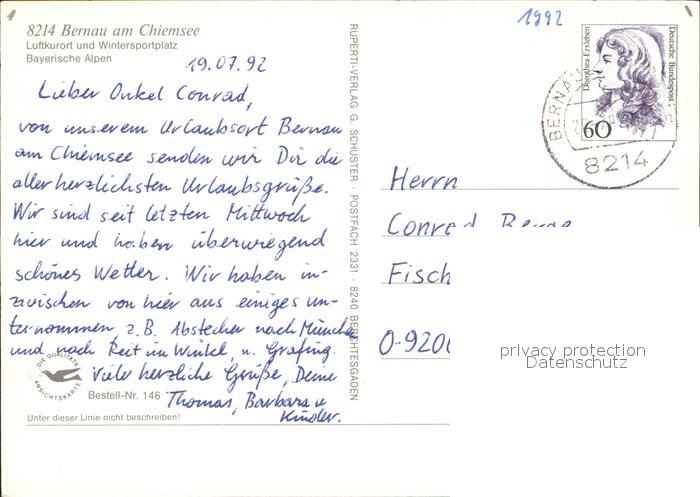 1992
8214 Bernau am Chiemsee
Luftkurort und Wintersportplatz
Bayerische Alpen
19.07.92
Lieber Onkel Conrad,
von unserem Urlaubsort Bernau
am Chiemsee senden wir Dir die
allerherzlichsten Urlaubsgrüße.
Wir sind seit letzten Mittwoch
hier und haben überwiegend
schönes Wetter. Wir haben in-
zwischen von hier aus einiges un-
ternommen, z.B. Abstecher nach München
und nach Reit im Winkel, u. Grafing.
Viele herzliche Grüße, Deine
Thomas, Barbara u
Kinder.
DIE QUALITÄTS
ANSICHTSKARTE
Bestell-Nr. 146
Unter dieser Linie nicht beschreiben!
RUPERTI-VERLAG G. SCHUSTER · POSTFACH 2331 · 8240 BERCHTESGADEN
Dorothea Erxleben
Deutsche Bundespost
60
BERNAU
8214
Herrn
Conrad
Fisch
O-920
privacy protection
Datenschutz